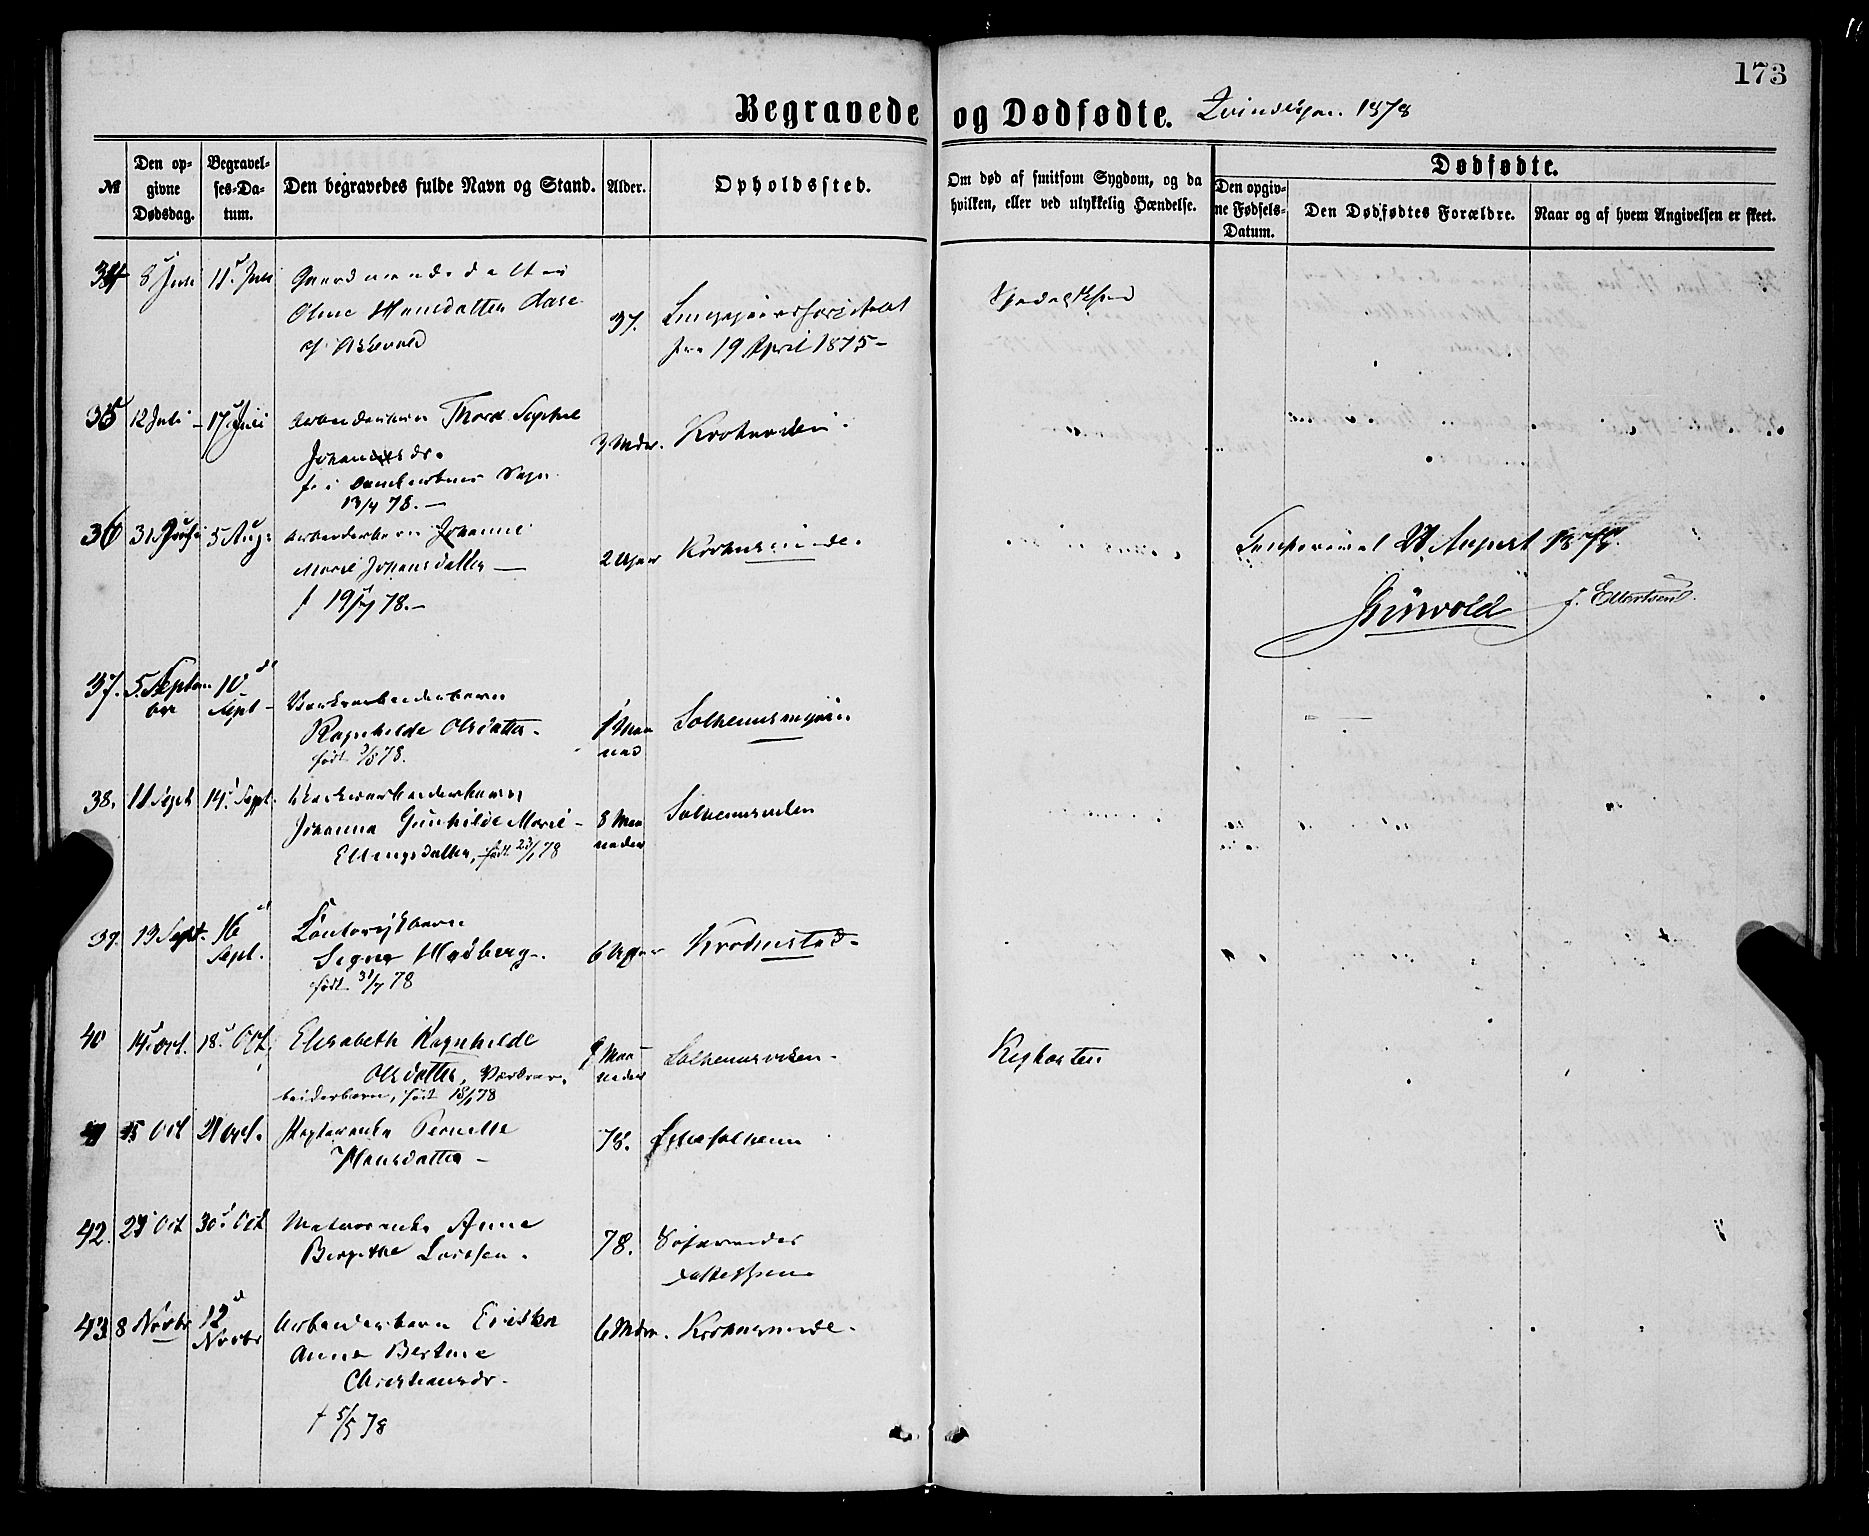 173
Begravede og Dødfødte. Qvindekjøn. 1878
№
Den opgivne Dødsdag.
Begravelses-Datum.
Den begravedes fulde Navn og Stand.
Alder.
Opholdssted.
Om død af smitsom Sygdom, og da hvilken, eller ved ulykkelig Hændelse.
Dødfødte.
Den opgivne Fødsels-Datum.
Den Dødfødtes Forældre.
Naar og af hvem Angivelsen er skeet.
34 8 Juli 11 Juli Gaardmandsdatter
Oline Hansdatter Aase
af Askevold
37. Lungegaardshospitalet
fra 19 April 1875 -
Spedalskhed
35 12 Juli - 17 Juli Arbeiderbarn Thora Sophie
Johannesdr.
f. i Domkirkens Sogn
13/4 78. -
3 Mdr. Krohnviken.
36 31 Juli 5 Aug: Arbeiderbarn Johanne
Marie Johansdatter -
f 19/7 78. -
2 Uger Krohnsminde.
August 1878.
Grirvold J. Ellertsen
37. 5 September 10 Sept - Værksarbeiderbarn
Ragnhilde Olsdatter -
født 3/8 78.
1 Maaned Solheimsmyren
38. 11 Sept 14 Sept. Værksarbeiderbarn
Johanna Gunhilde Marie
Ellingsdatter, født 23/1 78
8 Maaneder Solheimsviken
39. 13 Sept. 16 Sept.
Signe Hadberg -
født 31/7 78
6 Uger Krohnsted -
40 14 Oct. 18 Oct. Elisabeth Ragnhilde
Olsdatter, Værksarbeiderbarn, født 18/1 78
9 Maaneder Solheimsviken -
Kighosten
41 15 Oct 21 Oct. Pernille
Hansdatter -
78. Lille Solheim
42. 27 Oct 30 Oct Matrosenke Anne
Birgitte Larssen.
78.
43 8 Novbr 12 Novbr Arbeiderbarn Erikka
Anna Bertine
Christiansdr -
f 5/5 78
6 Mdr. Krohnsminde -